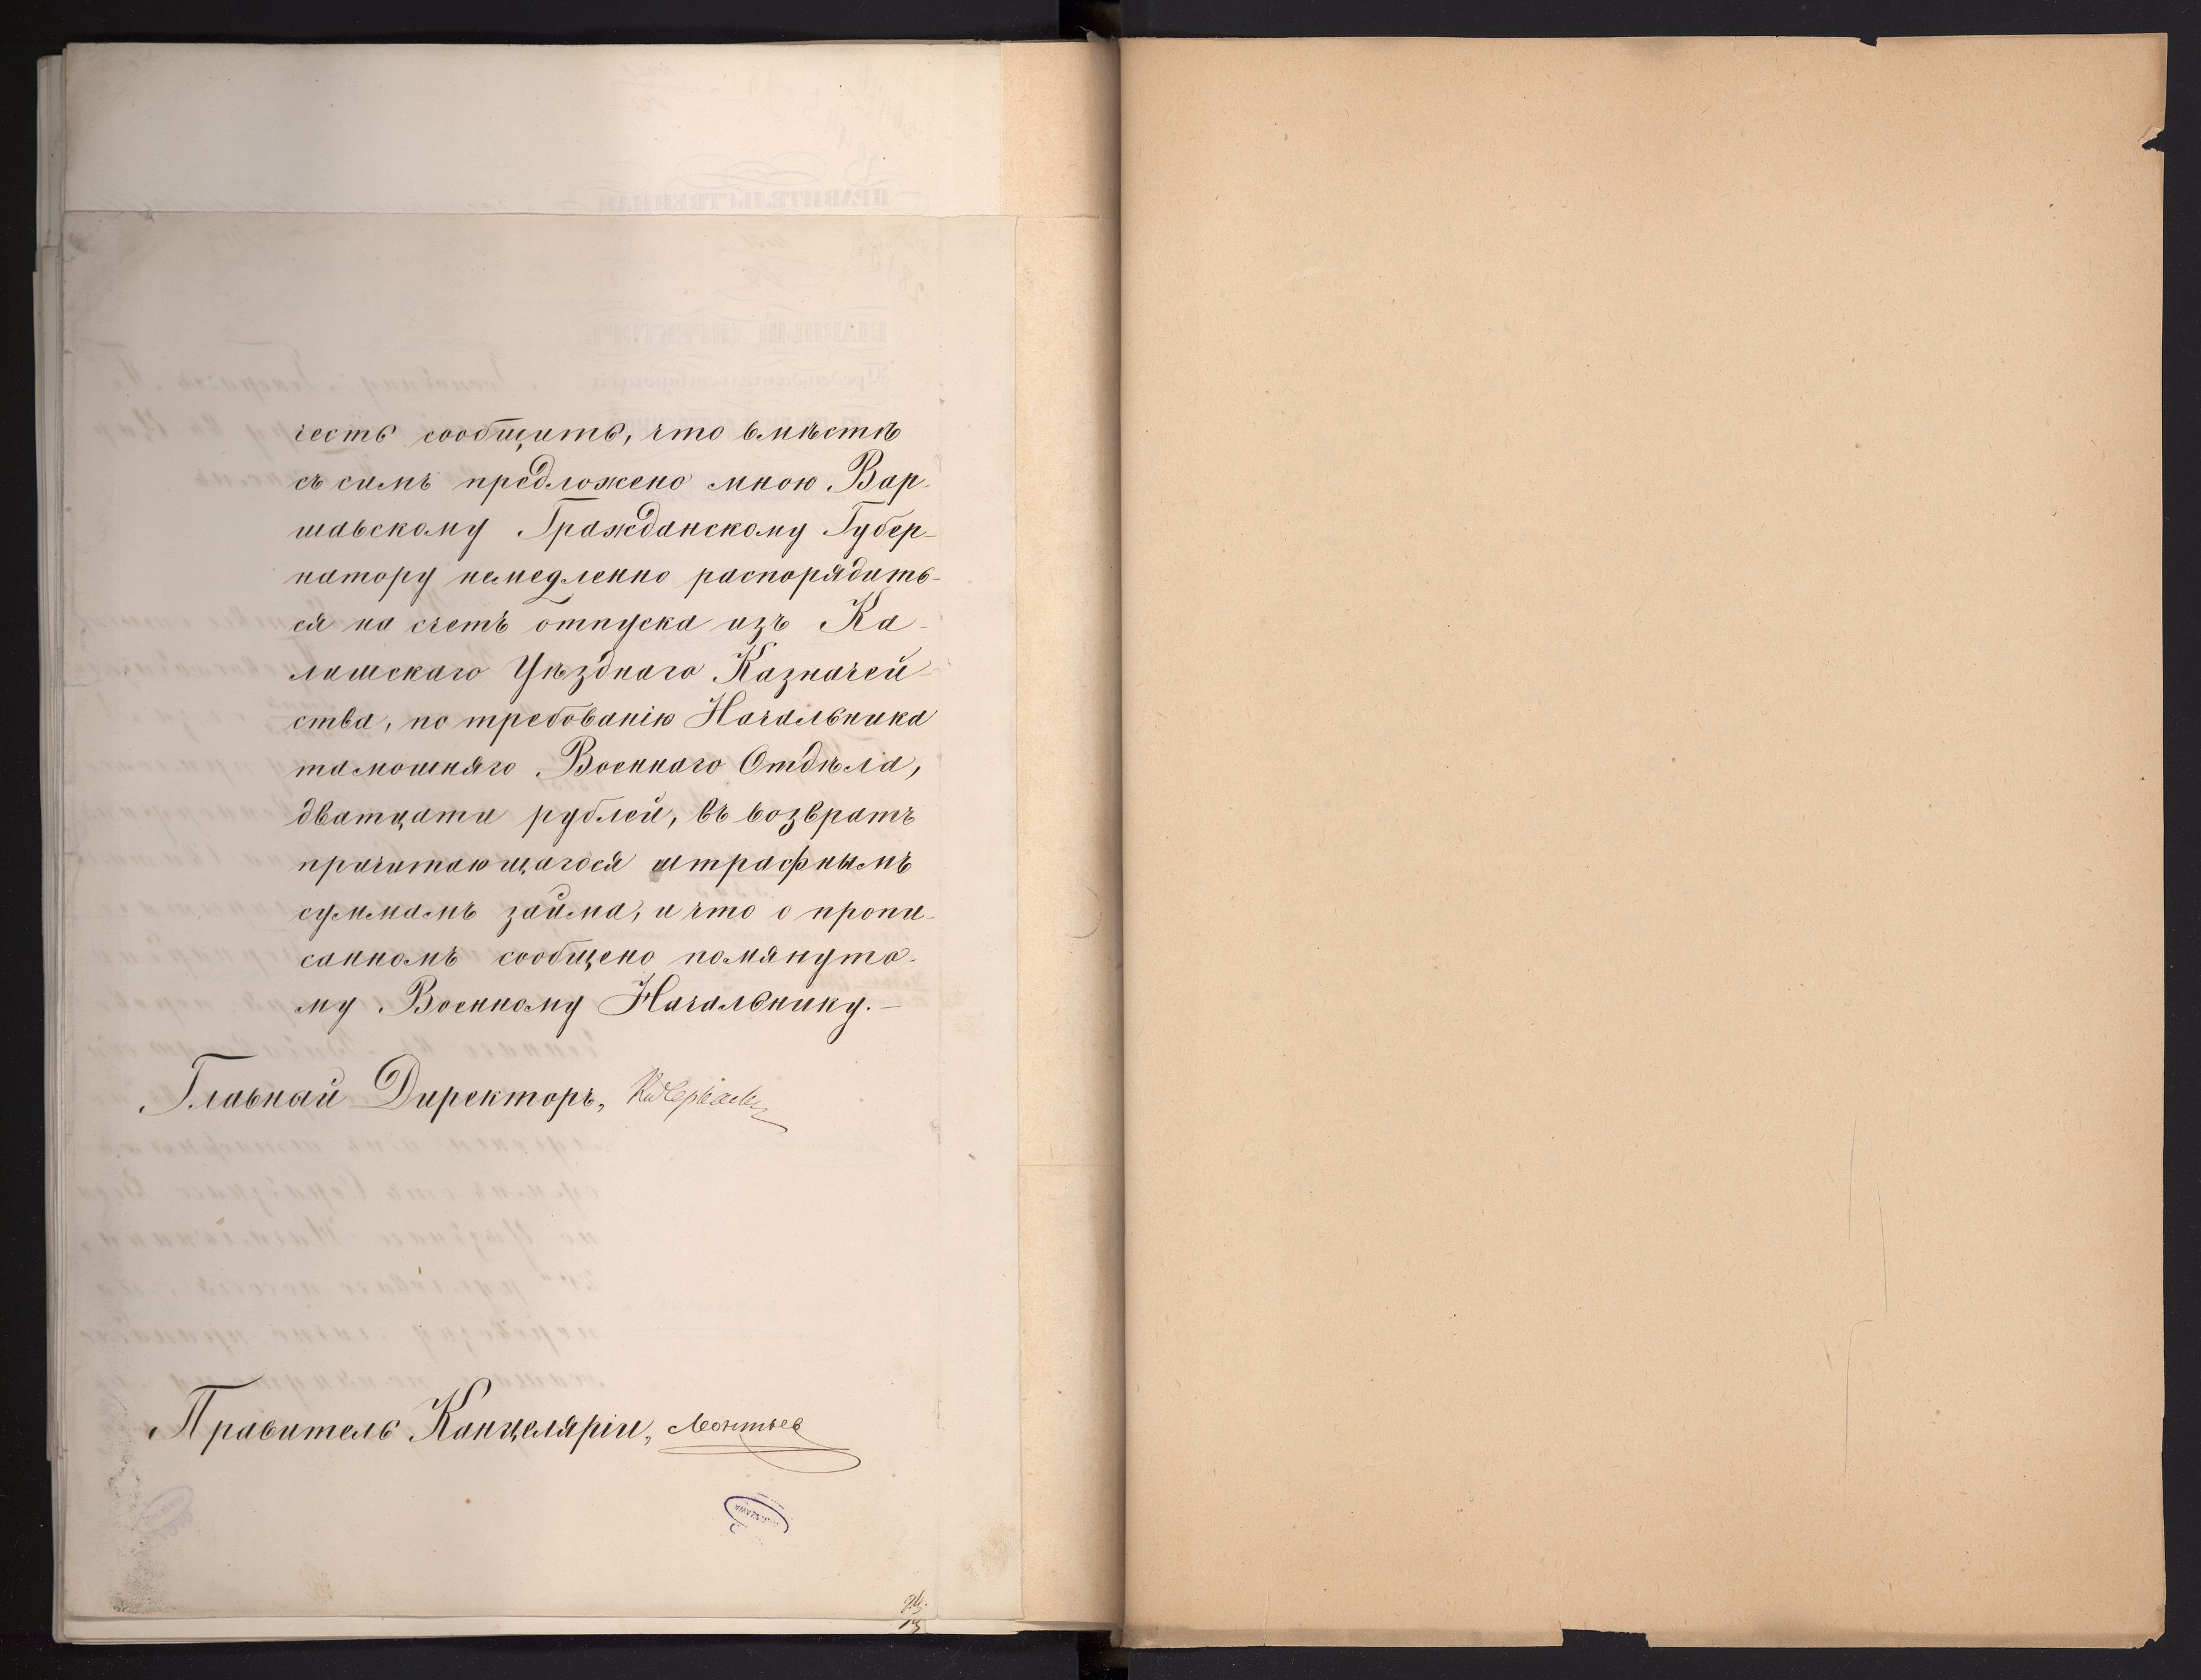 честь сообщить, что вмѣстѣ
съ симъ предложено мною Вар-
шавскому Гражданскому Губер-
натору немедленно распорядить-
ся на счетъ отпуска изъ Ка-
лишскаго Уѣзднаго Казначей-
ства, по требованію Начальника
тамошняго Военнаго Отдѣла,
дватцати рублей, въ возвратъ
причитающагося штрафнымъ
суммамъ займа, и что о пропи-
санномъ сообщено помянуто-
му Военному Начальнику.—
Главный Директоръ,
Правитель Канцеляріи, Леонтьев